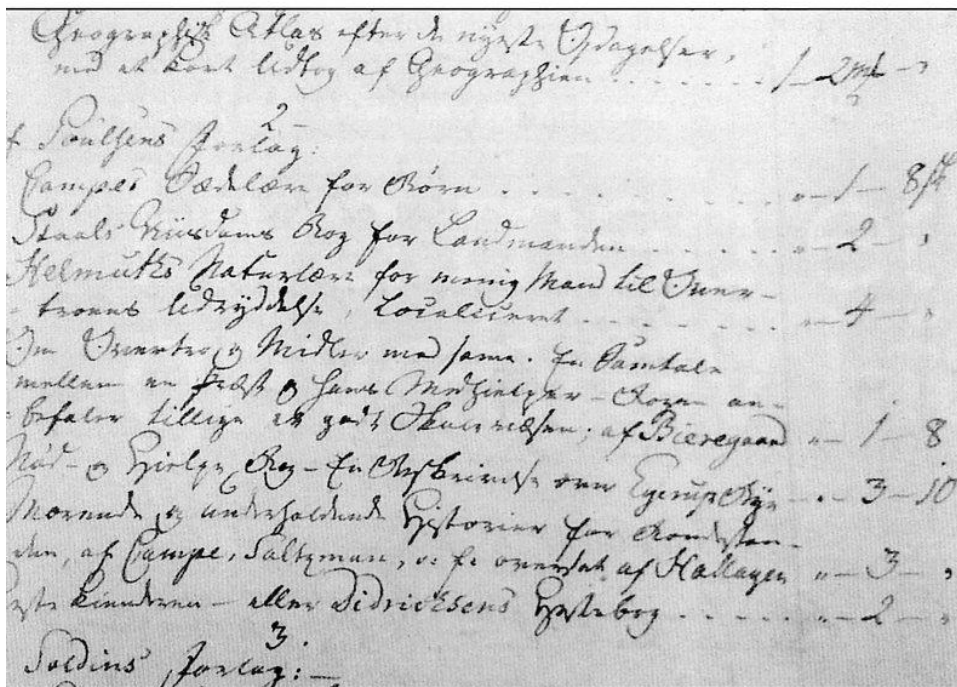 Geographisk Atlas efter de nyeste Opdagelser,
med et kort Udtog af Geographien . . . . . . / 2 mk - "
2
Poulsens Forlag:
Campes Sædelære for Børn . . . . . . . . . . " - 1 - 8 sk
Staals Viisdoms Bog for Landmanden . . . . . . " - 2 - "
Helmuths Naturlære for menig Mand til Over-
troens Udryddelse, Localiseret . . . . . . . " - 4 - "
Om Overtro og Midler mod samme. En Samtale
mellem en Præst og hans Medhielper - Bogen an-
befaler tillige et godt Skolevæsen; af Bieregaard " - 1 - 8
Nød- og Hielpe Bog - En Beskrivelse over Egerup Bye - " - 3 - 10
Morende og underholdende Historier for Bondestan-
den, af Campe, Saltzman, o. fl. oversat af Hallager " - 3 - "
Heste Kienderen - eller Didrichsens Hestebog . . . . . . " - 2 - "
3
Soldins Forlag: -